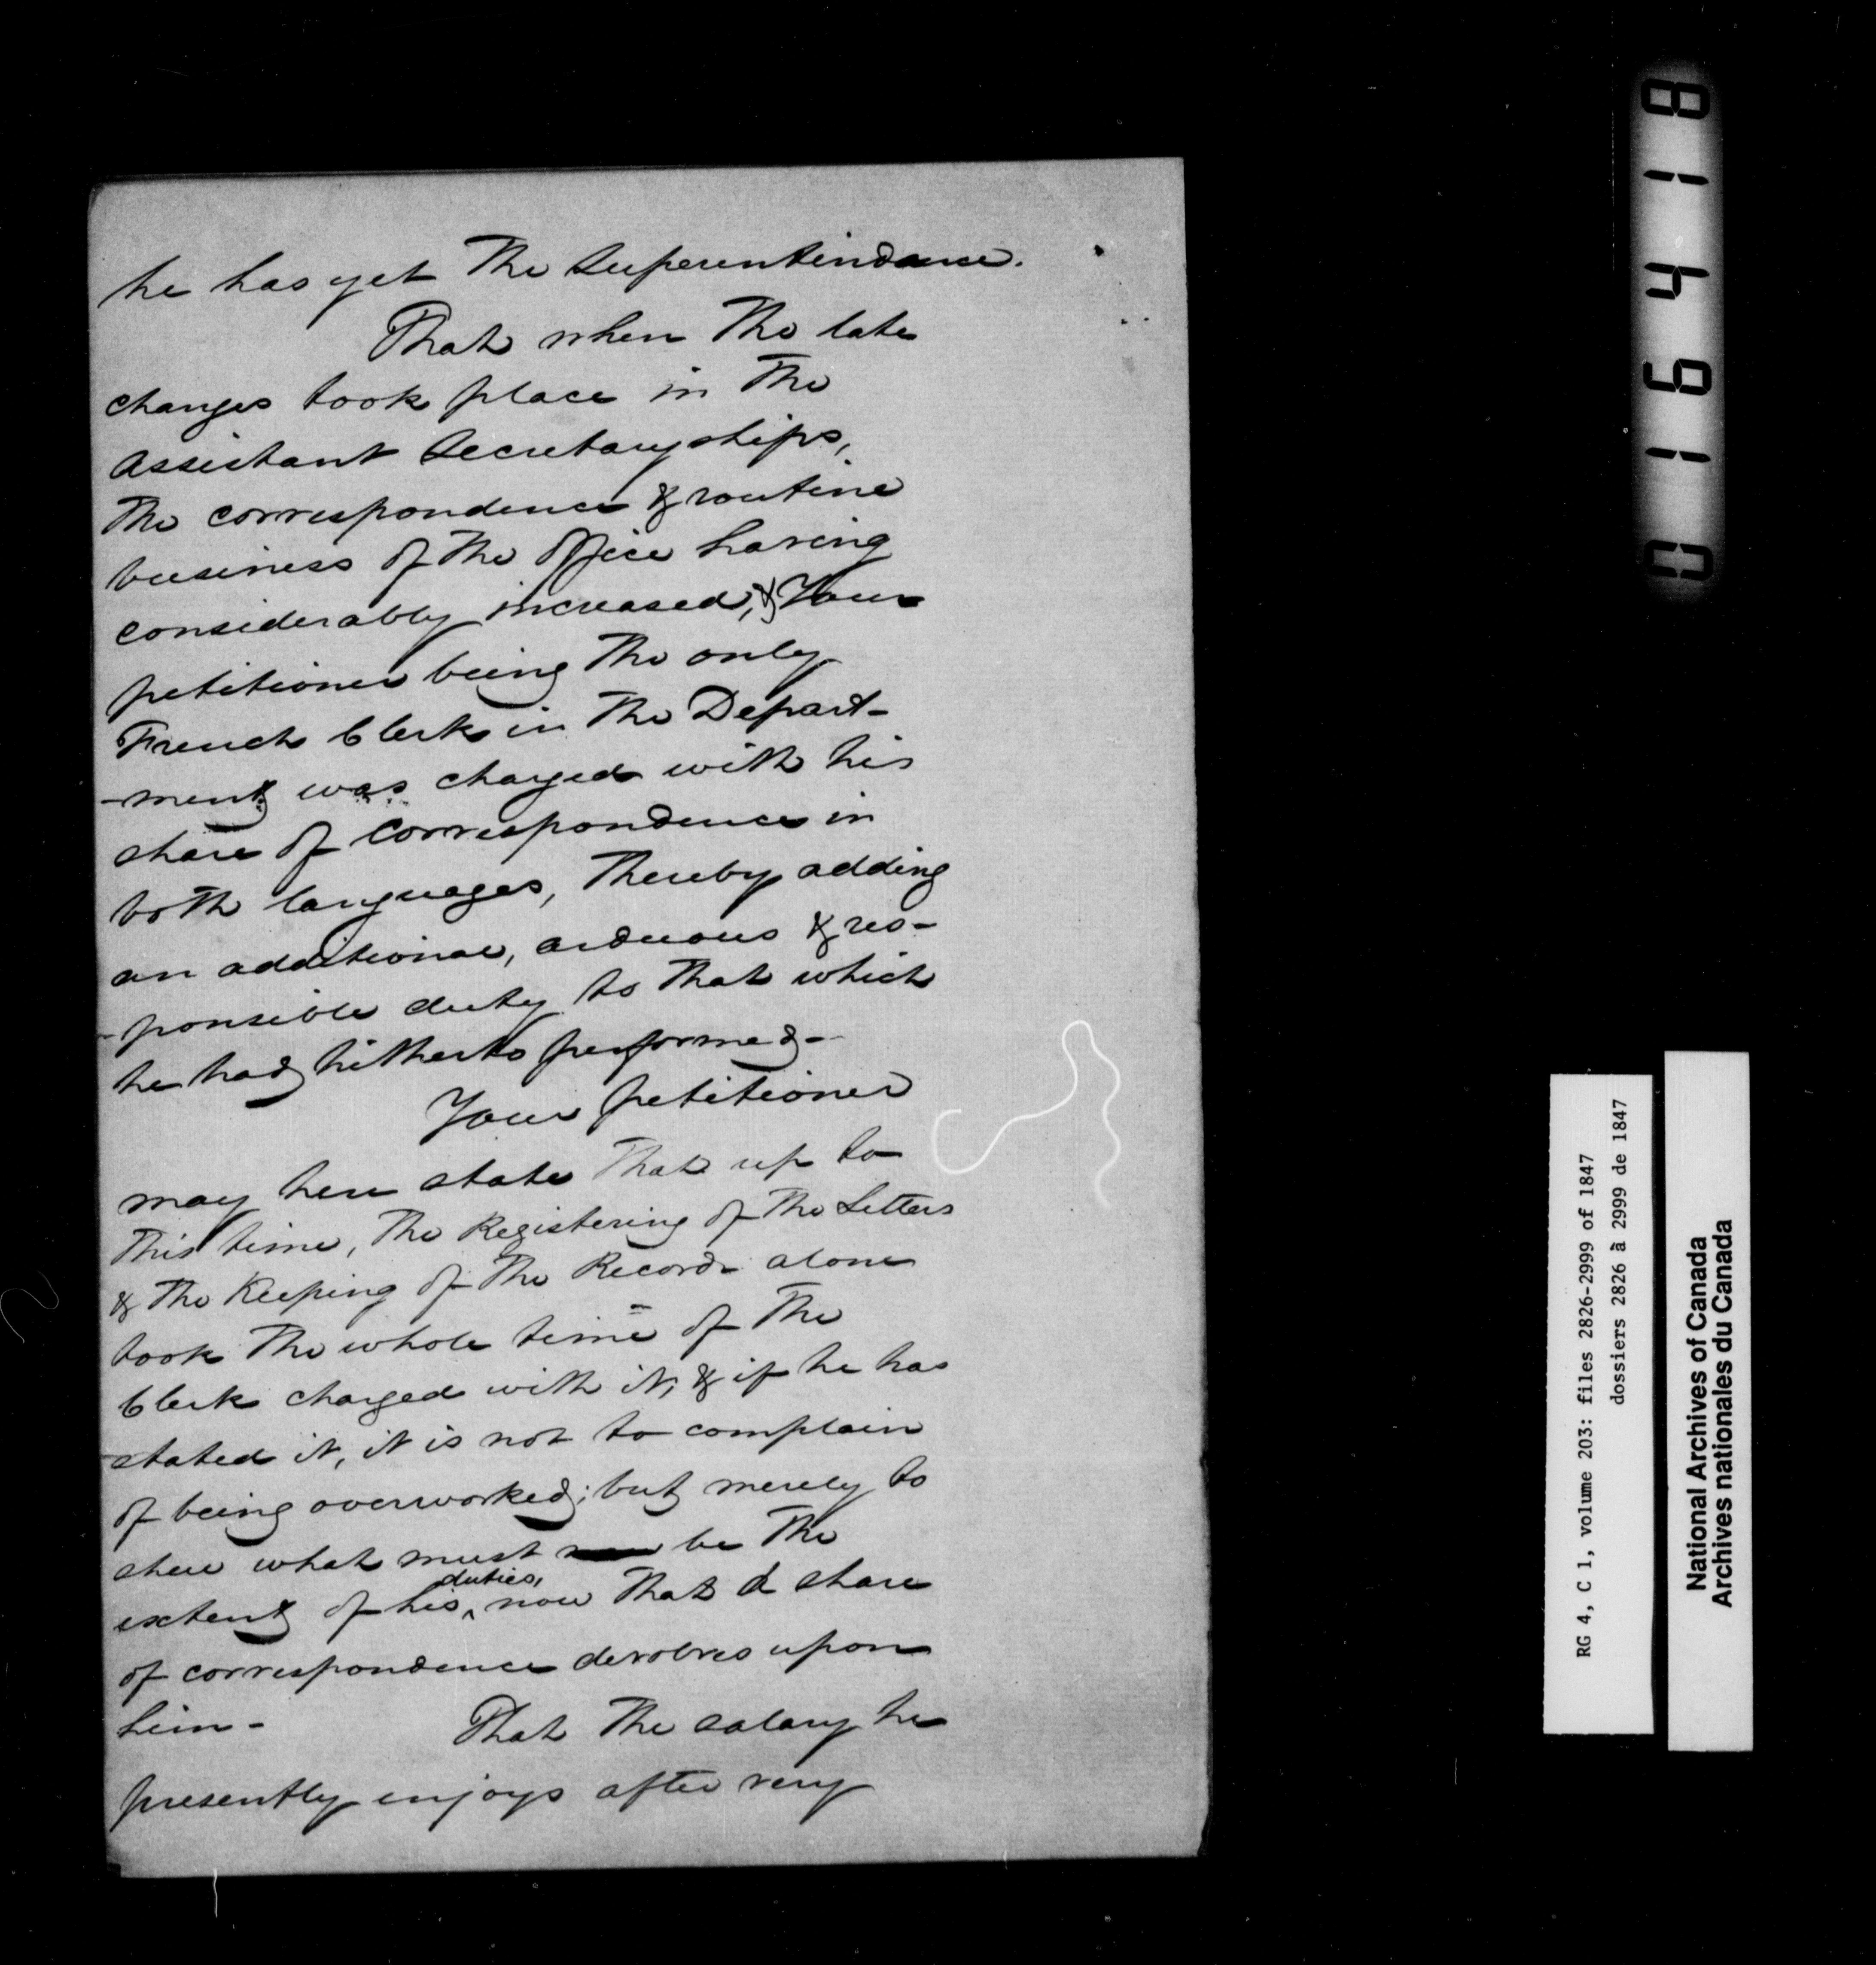 he has yet the Superintendance.
That when the late
changes took place in the
Assistant Secretaryships,
the correspondence & routine
business of the Office having
considerably increased, & Your
petitioner being the only
French Clerk in the Depart-
-ment was charged with his
share of correspondence in
both languages, thereby adding
an additional, arduous & res-
-ponsible duty to that which
he had hitherto performed -
Your petitioner
may here state that up to
this time, the Registering of the Letters
& the Keeping of the Records alone
took the whole time of the
Clerk charged with it, & if he has
stated it, it is not to complain
of being overworked; but merely to
shew what must be the
extent of his duties, now that a share
of correspondence devolves upon
him - That the salary he
presently enjoys after very
016418
RG 4, C 1, volume 203: files 2826-2999 of 1847
dossiers 2826 à 2999 de 1847
National Archives of Canada
Archives nationales du Canada